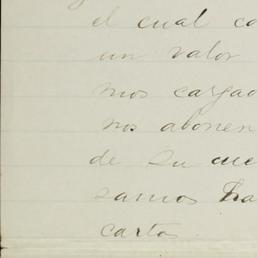 el cual co
un valor
mos cargad
nos abonen
de su cue
samos ha
carta